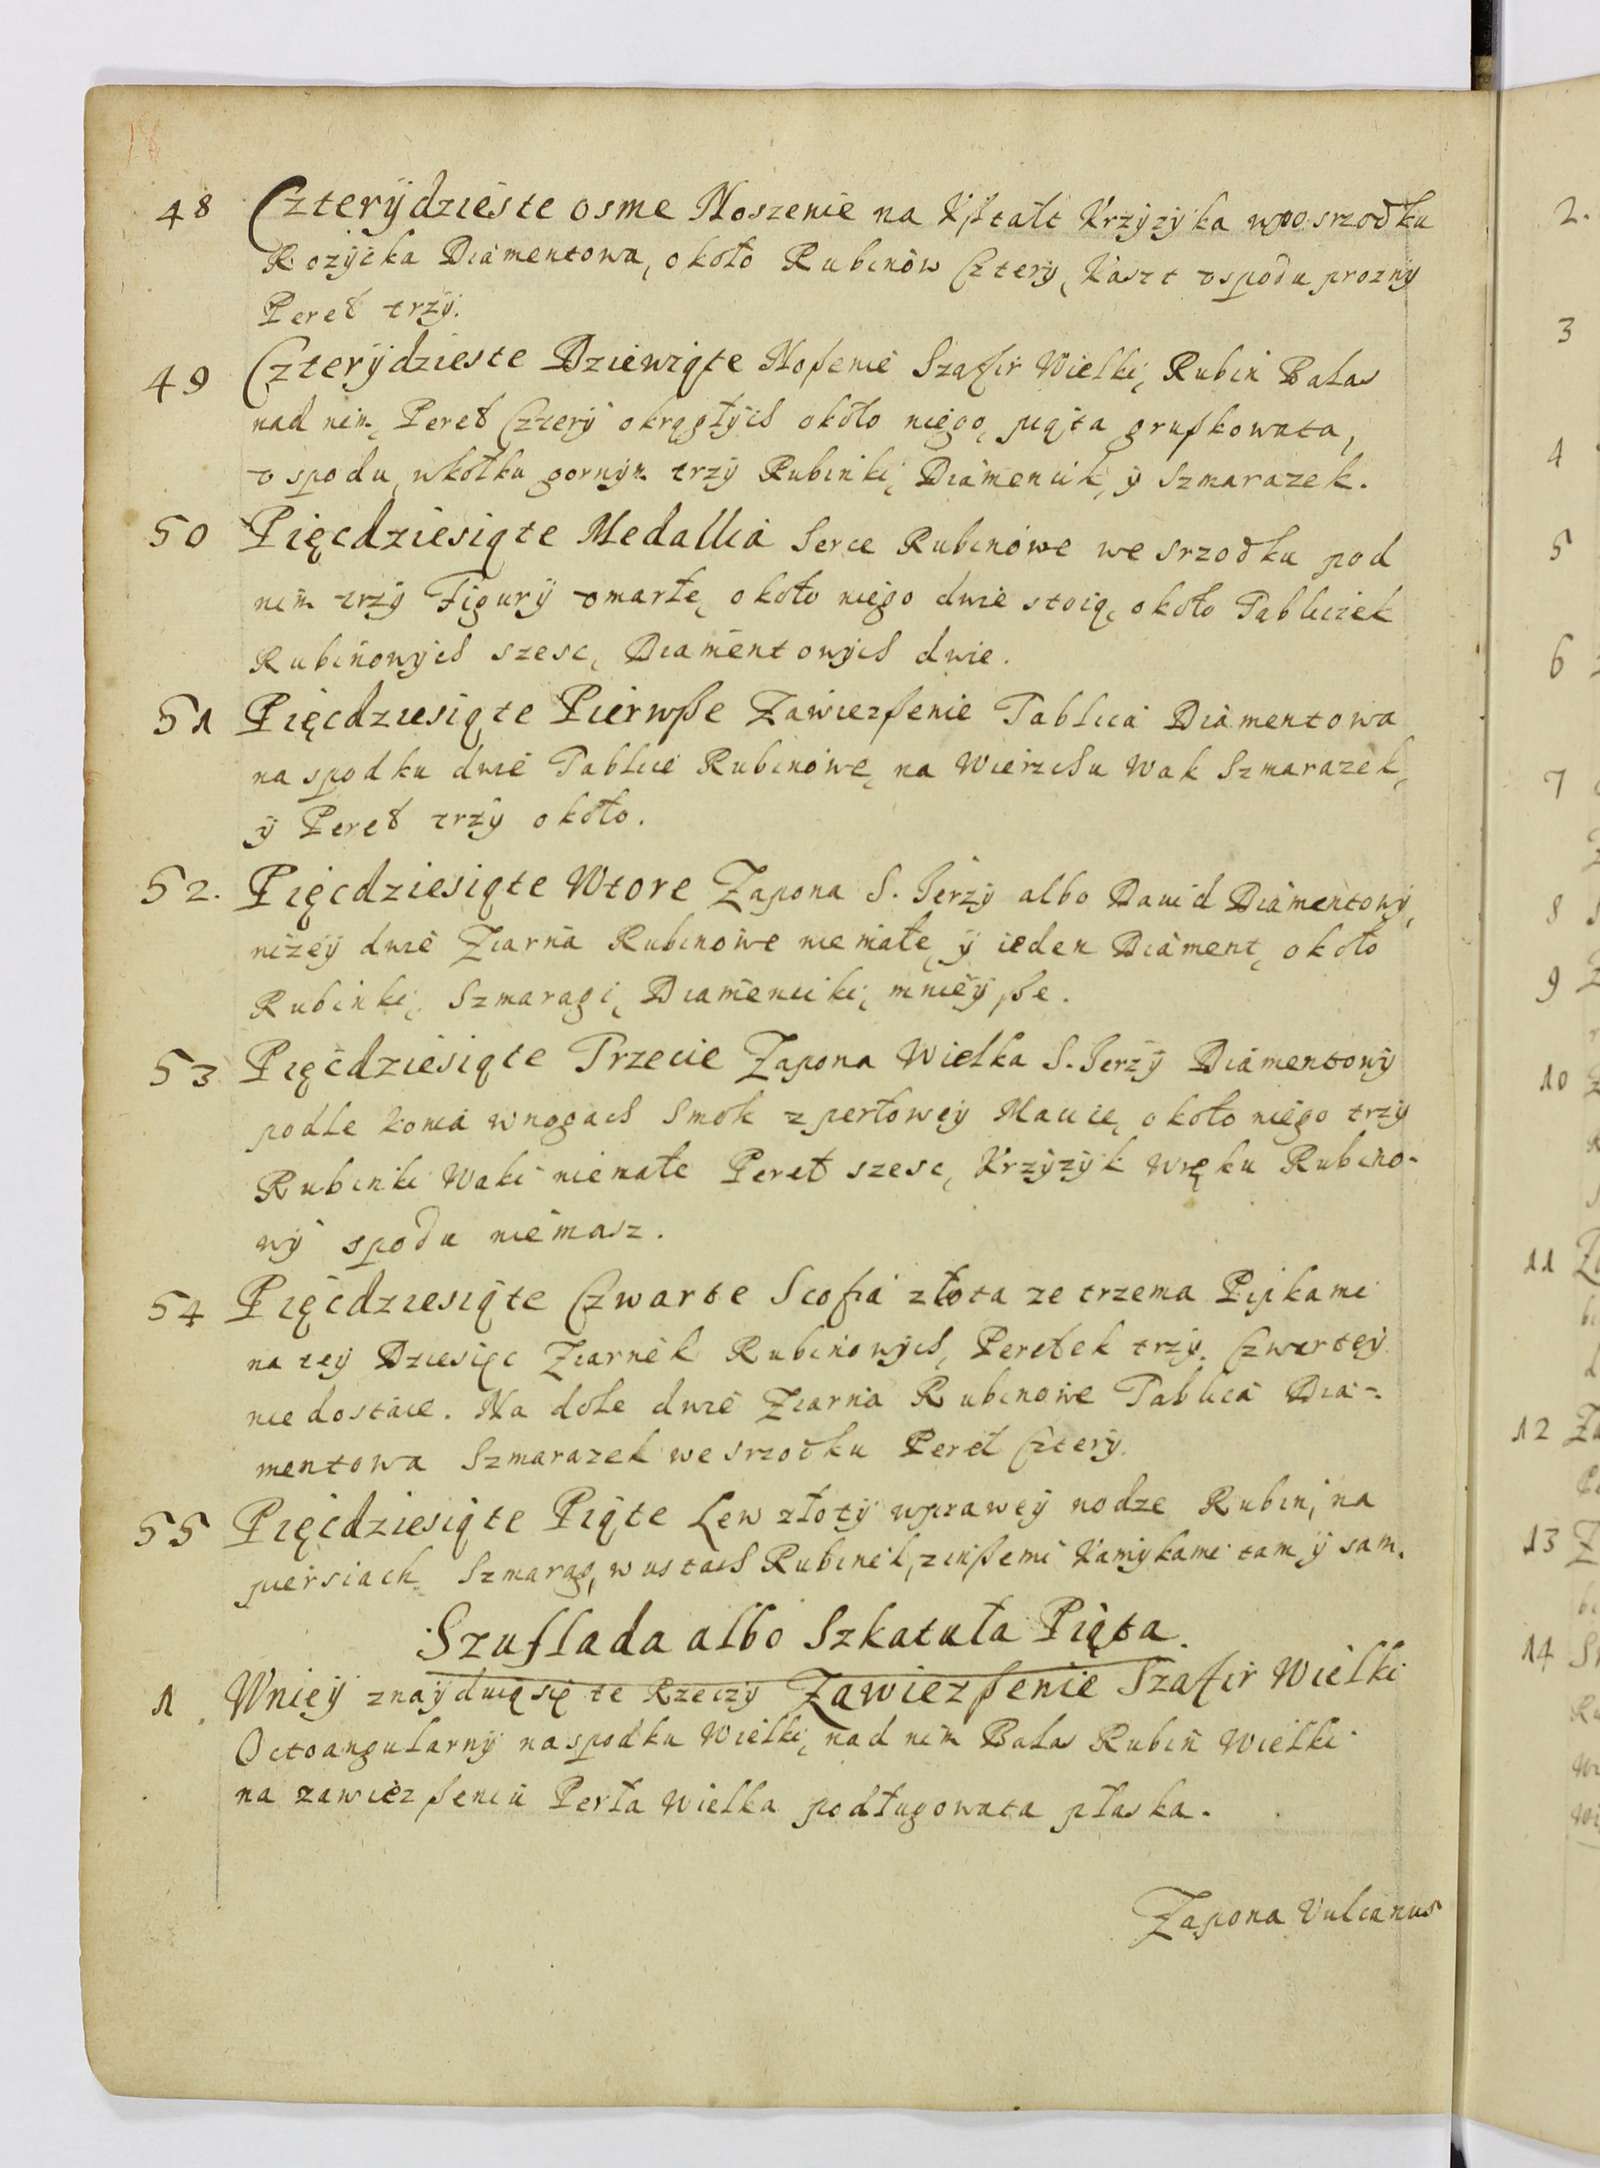 18
48 Czterydzieste osme Noszenie na Kształt Krzyzyka wposrzodku
Rozyczka Diamentowa, około Rubinow Cztery, Kaszt vspodu prozny
Pereł trzy.
49 Czterydzieste Dziewiąte Noszenie Szafir Wielki, Rubin Balas
nad nim, Pereł Cztery okrągłych około niego, piąta gruszkowata,
v spodu, wkołku gornym trzy Rubinki, Diamencik, y Szmarazek.
50 Pięcdziesiąte Medallia Serce Rubinowe we srzodku pod
nim trzy Figury vmarłe, około niego dwie stoią, około Tabliczek
Rubinowych szesc, Diamentowych dwie.
51 Pięcdziesiąte Pierwsze Zawieszenie Tablica Diamentowa
na spodku dwie Tablice Rubinowe, na Wierzchu Wak Szmarazek,
y Pereł trzy około.
52. Pięcdziesiąte Wtore Zapona S. Jerzy albo Dauid Diamentowy,
nizey dwie Ziarna Rubinowe niemałe, y ieden Diament, około
Rubinki, Szmaragi, Diamenciki, mnieysze.
53 Pięcdziesiąte Trzecie Zapona Wielka S. Jerzy Diamentowy
podle konia wnogach Smok z perłowey Macice, około niego trzy
Rubinki Waki niemałe Pereł szesc, Krzyzyk wręku Rubino-
wy spodu niemasz.
54 Pięcdziesiąte Czwarte Scofia złota ze trzema Pipkami
na tey Dziesięc Ziarnek Rubinowych, Perełek trzy, Czwartey
niedostaie. Na dole dwie Ziarna Rubinowe Tablica Dia-
mentowa Szmarazek wesrzodku Pereł Cztery.
55 Pięcdziesiąte Piąte Lew złoty wprawey nodze Rubin, na
piersiach Szmarag, wustach Rubinek, zinszemi Kamykami tam y sam.
Szuflada albo Szkatuła Piąta.
1 Wniey znayduią się te Rzeczy Zawieszenie Szafir Wielki
Octoangularny naspodku Wielki, nad nim Balas Rubin Wielki
na zawieszeniu Perła Wielka podługowata płaska.
Zapona Vulcanus
2.
3
4
5
6
7
8
9
10
11
12
13
14